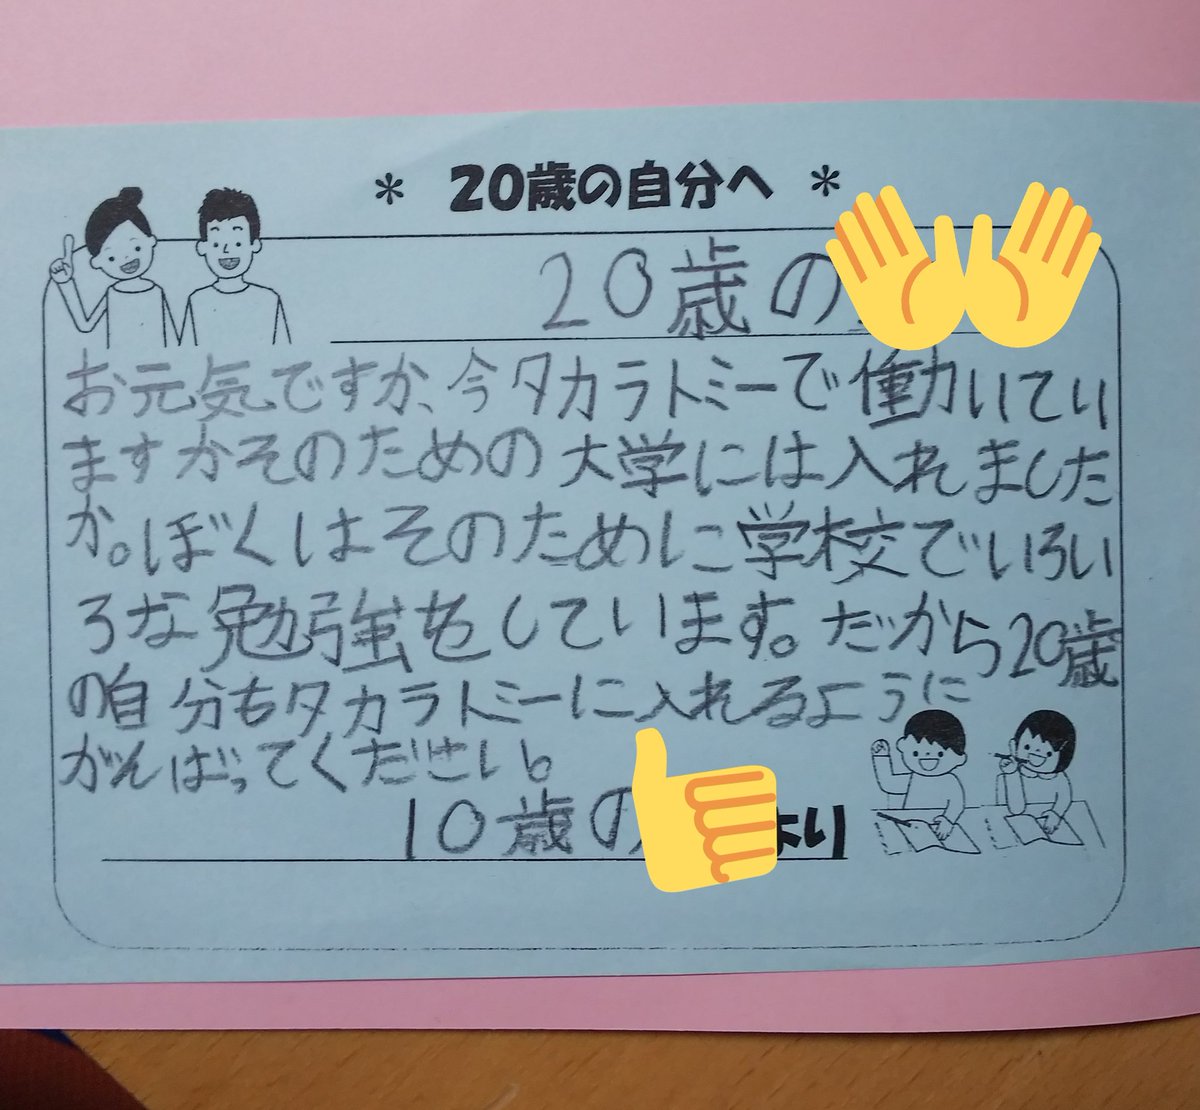 * 20歳の自分へ *
20歳の
お元気ですか、今タカラトミーで働いてい
ますかそのための大学には入れました
か。ぼくはそのために学校でいろい
ろな勉強をしています。だから20歳
の自分もタカラトミーに入れるように
がんばってください。
10歳の より